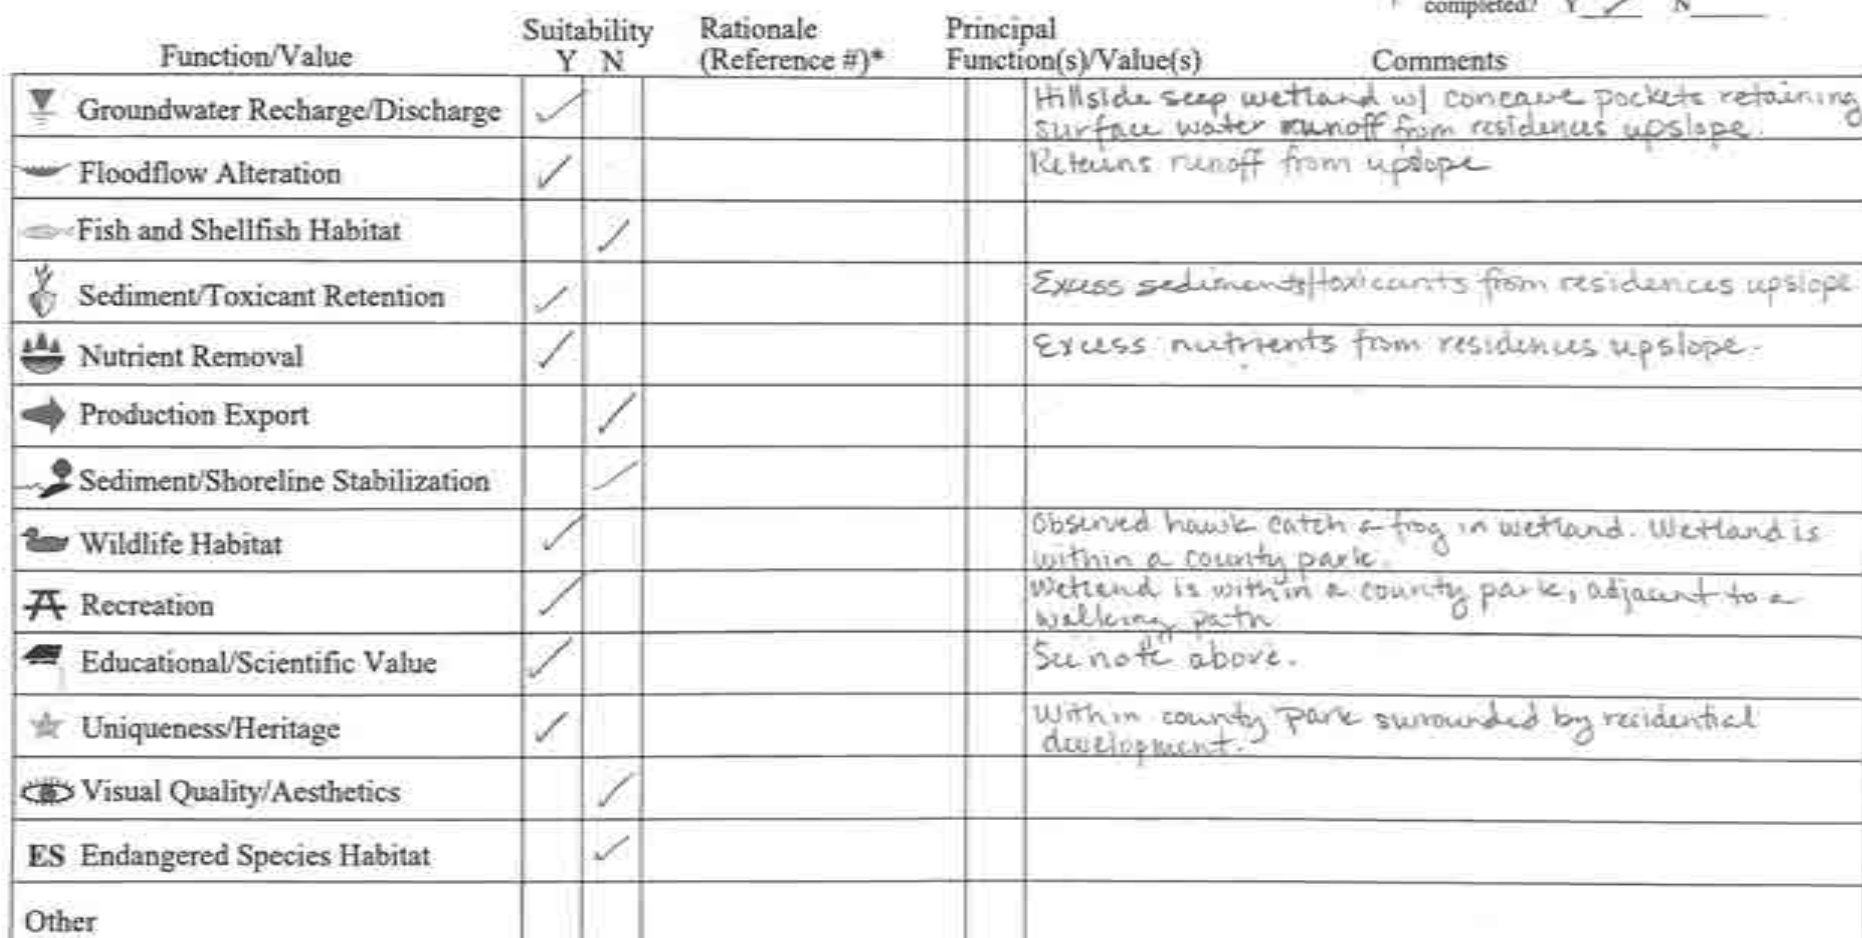 completed? Y ✓ N
Suitability Rationale Principal
Function/Value Y N (Reference #)* Function(s)/Value(s) Comments
Groundwater Recharge/Discharge ✓ Hillside seep wetland w/ concave pockets retaining
surface water runoff from residences upslope.
Floodflow Alteration ✓ Retains runoff from upslope
Fish and Shellfish Habitat ✓
Sediment/Toxicant Retention ✓ Excess sediments/toxicants from residences upslope
Nutrient Removal ✓ Excess nutrients from residences upslope.
Production Export ✓
Sediment/Shoreline Stabilization ✓
Wildlife Habitat ✓ Observed hawk catch a frog in wetland. Wetland is
within a county park.
Recreation ✓ Wetland is within a county park, adjacent to a
walking path
Educational/Scientific Value ✓ See note above.
Uniqueness/Heritage ✓ Within county park surrounded by residential
development.
Visual Quality/Aesthetics ✓
ES Endangered Species Habitat ✓
Other